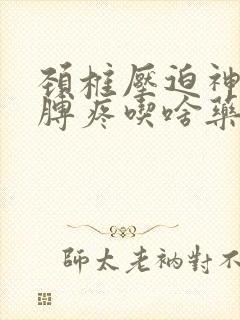 頚椎壓迫神
脾疼喫啥藥
師太老衲對不